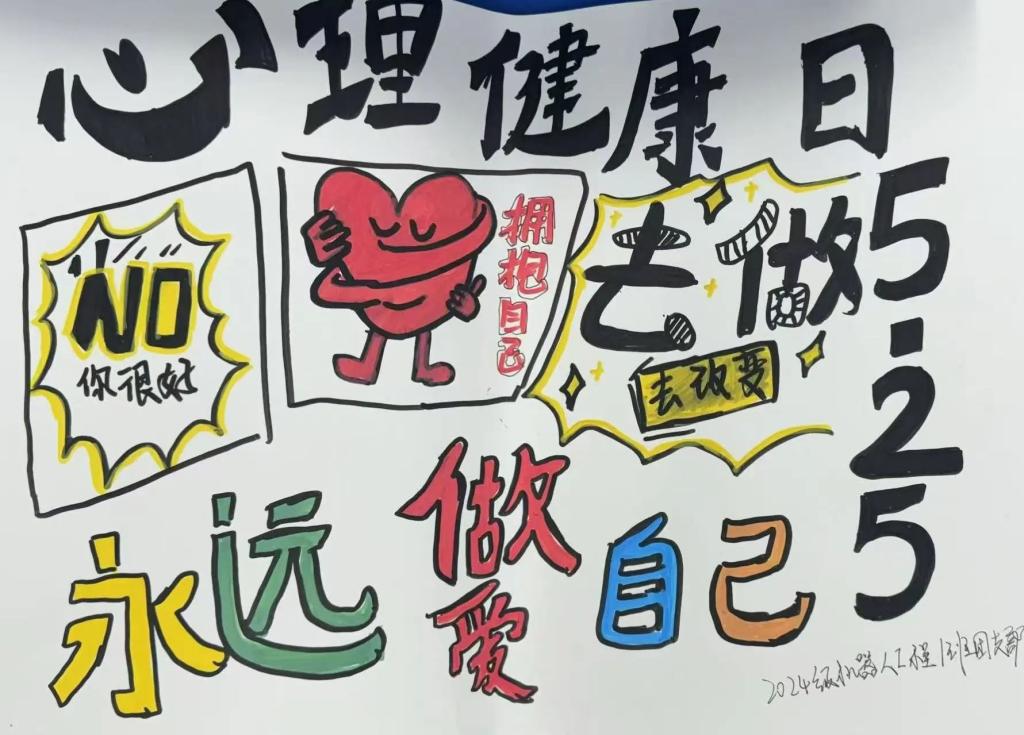 心理健康日
5.25
NO
你很好
拥抱自己
去做
去改变
永远做自己
爱
2024级机器人工程1班团支部